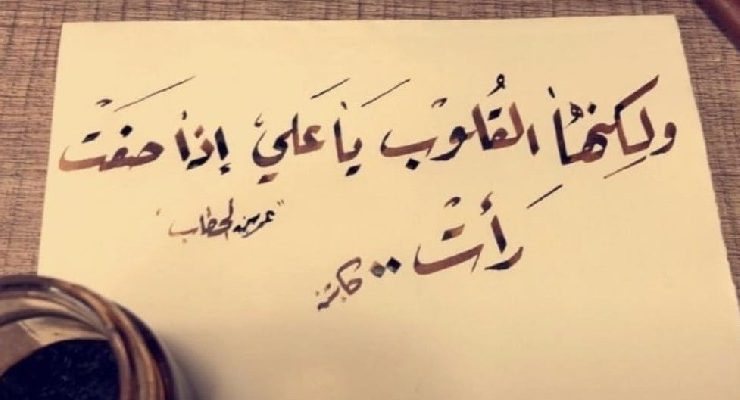 ولكِنهَا القُلوْب يَا عَليْ إذا صفَتْ
رَأتْ ..
"عمر بن الخطاب"